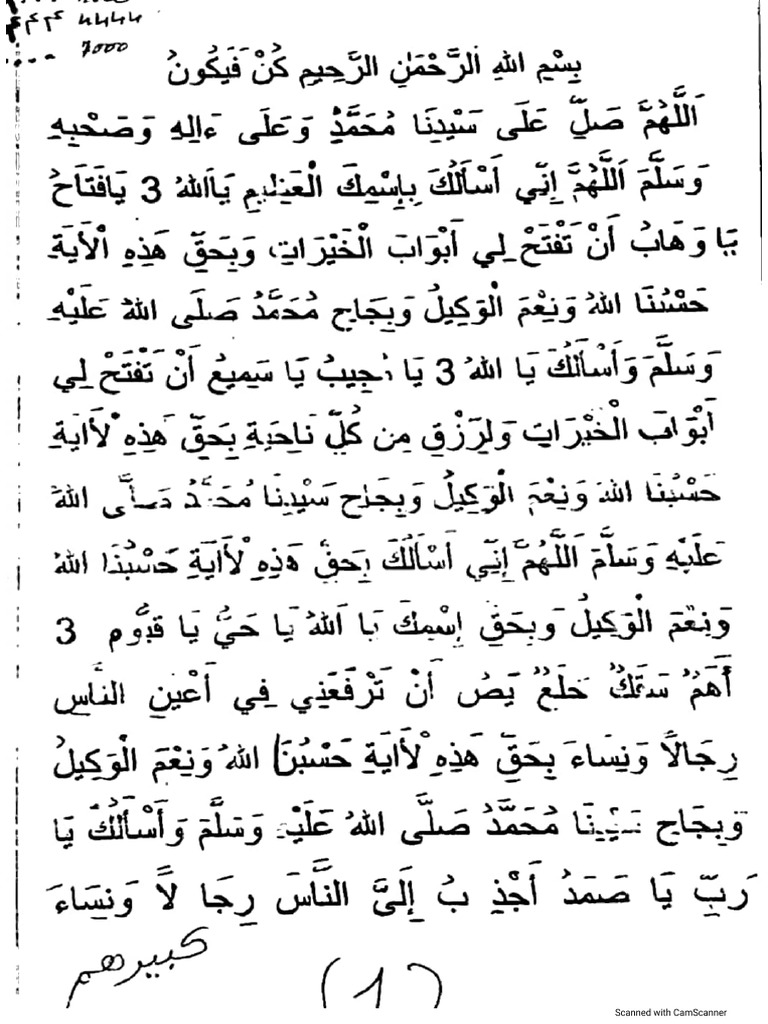 4444
7000
بِسْمِ اللهِ الرَّحْمَنِ الرَّحِيمِ كُنْ فَيَكُونُ
اَللَّهُمَّ صَلِّ عَلَى سَيِّدِنَا مُحَمَّدٍ وَعَلَى ءَالِهِ وَصَحْبِهِ
وَسَلَّمَ اَللَّهُمَّ إِنِّي أَسْأَلُكَ بِإِسْمِكَ الْعَظِيمِ يَااَللهُ 3 يَافَتَاحُ
يَا وَهَابُ أَنْ تَفْتَحْ لِي أَبْوَابَ الْخَيْرَاتِ وَبِحَقِّ هَذِهِ الْأَيَةِ
حَسْبُنَا اللهُ وَنِعْمَ الْوَكِيلُ وَبِجَاحِ مُحَمَّدُ صَلَّى اللهُ عَلَيْهِ
وَسَلَّمَ وَأَسْأَلُكَ يَا اللهُ 3 يَا جِيبُ يَا سَمِيعُ أَنْ تَفْتَحْ لِي
أَبْوَابَ الْخَيْرَاتِ وَلِرَزْقِ مِن كُلِّ نَاحِيَةِ بِحَقِّ هَذِهِ لْأَايَةِ
حَسْبُنَا اللهُ وَنِعْمَ الْوَكِيلُ وَبِجَاحِ سَيْدِنَا مُحَمَّدُ صَلَّى اللهُ
عَلَيْهِ وَسَلَّمَ اَللَّهُمَّ إِنِّي أَسْأَلُكَ بِحَقِّ هَذِهِ لْأَايَةِ حَسْبُنَا اللهُ
وَنِعْمَ الْوَكِيلُ وَبِحَقِّ إِسْمِكَ يَا اَللهُ يَا حَيُّ يَا قَيُّوم 3
أَهَمٌ سَقَكٌ حَلَعٌ يَصٌ أَنْ تَرْفَعَنِي فِي أَعْيَنِ النَّاسِ
رِجَالاً وَنِسَاءَ بِحَقِّ هَذِهِ لْأَايَةِ حَسْبُنَا اللهُ وَنِعْمَ الْوَكِيلُ
وَبِجَاحِ سَيِّدِنَا مُحَمَّدُ صَلَّى اللهُ عَلَيْهِ وَسَلَّمَ وَأَسْأَلُكَ يَا
رَبِّ يَا صَمَدُ أَجْذِ بُ إِلَيَّ النَّاسَ رِجَا لاً وَنِسَاءَ
كبيرهم
(1)
Scanned with CamScanner